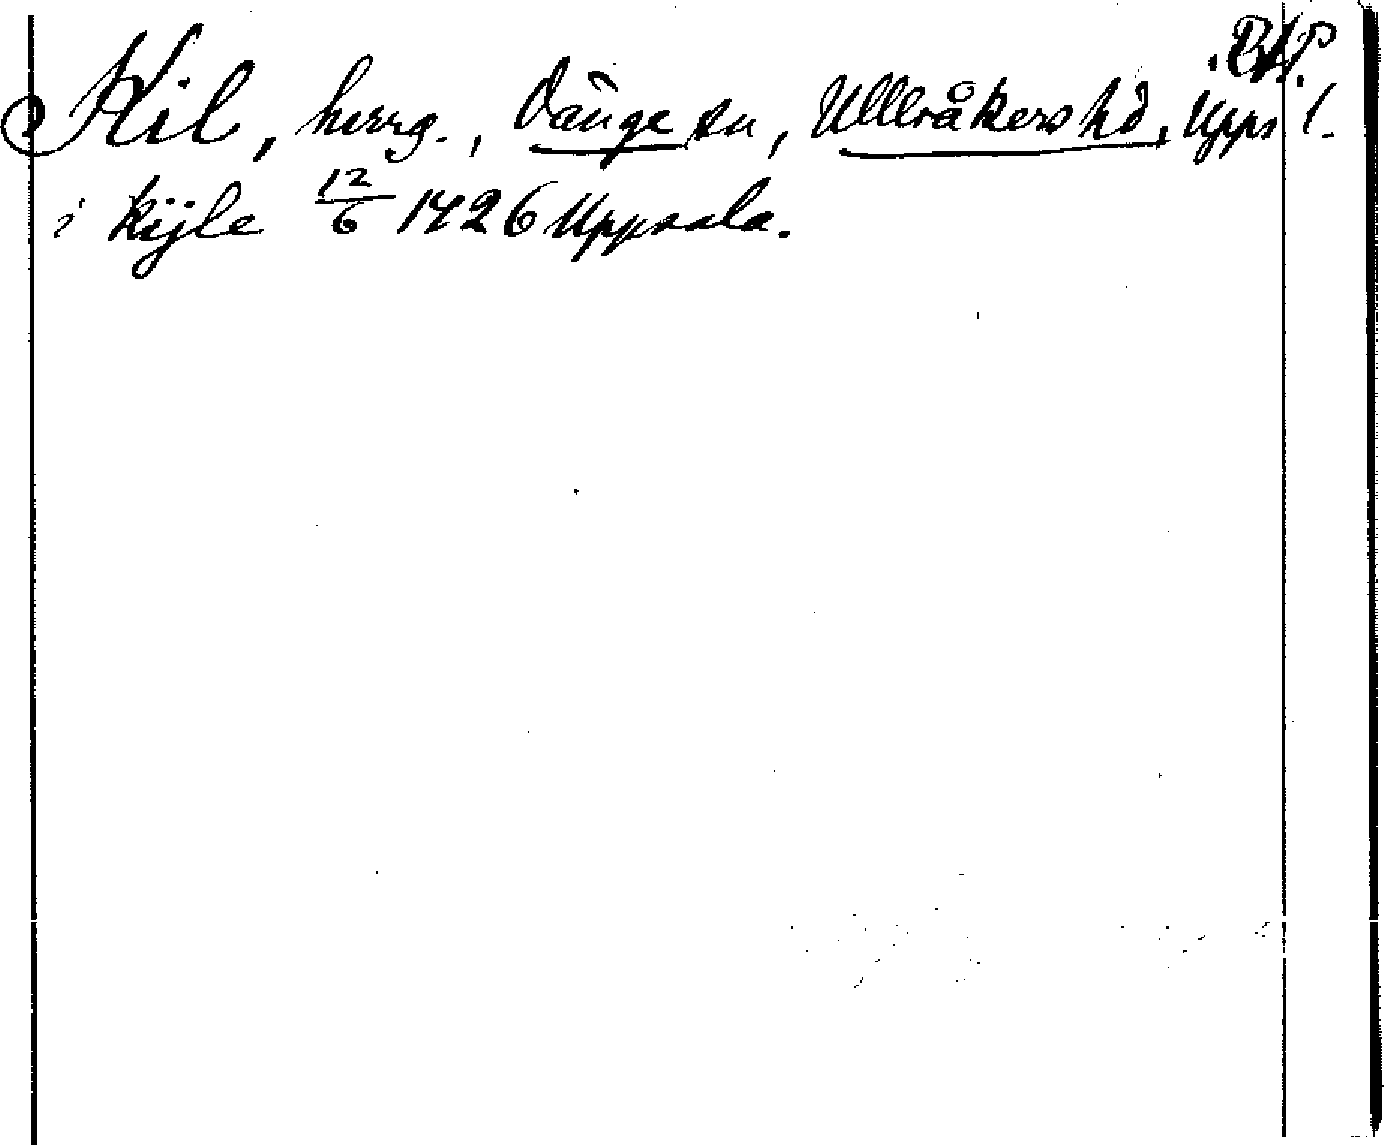 RAP.
Kil, herrg., Vänge sn, Ulleråkers hd, Upps l.
i kijle 12/6 1426 Uppsala.